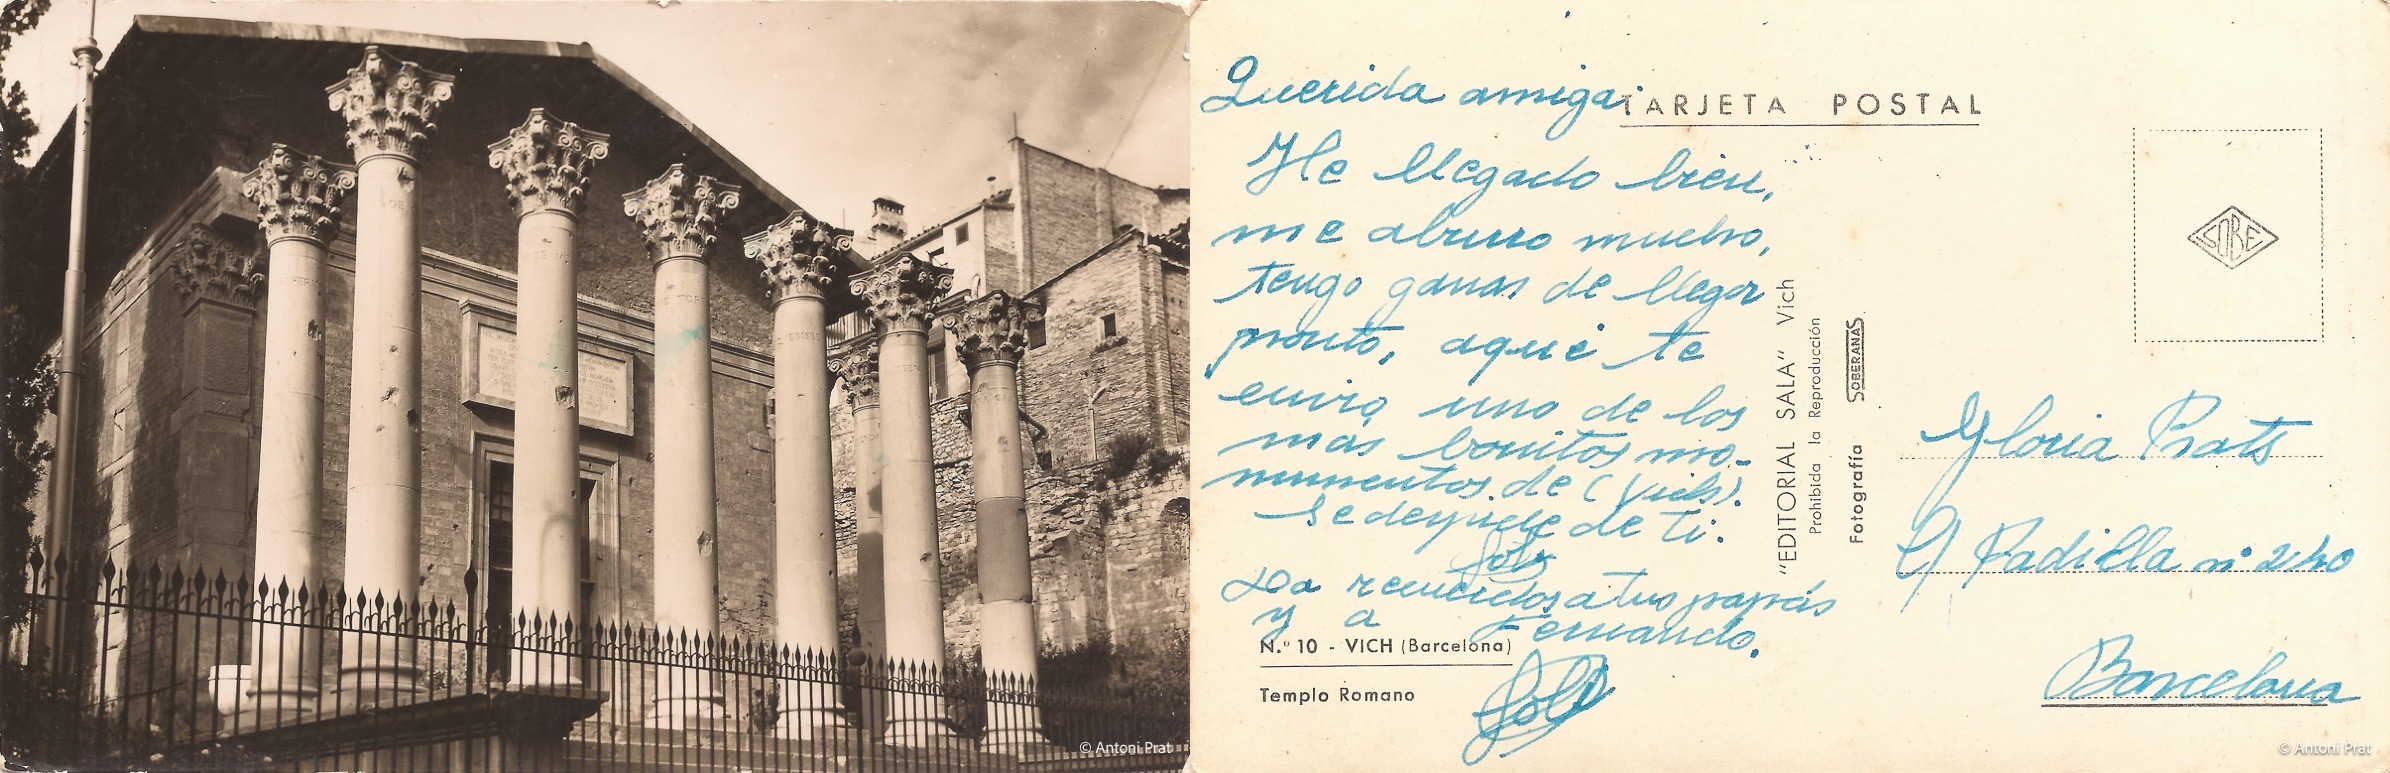 © Antoni Prat
Querida amiga:
TARJETA POSTAL
He llegado bien,
me aburro mucho,
tengo ganas de llegar
pronto, aqui te
envio uno de los
mas bonitos mo-
numentos de (Vich).
Se despide de ti.
Loli
Da recuerdos a tus papás
y a Fernando.
Loli
N.º 10 - VICH (Barcelona)
Templo Romano
"EDITORIAL SALA" Vich
Prohibida la Reproducción
Fotografía SOBERANAS
SOBE
Gloria Prats
C/ Padilla nº 240
Barcelona
© Antoni Prat